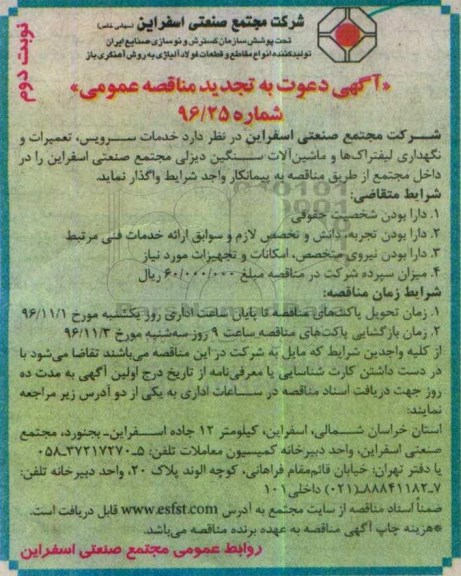 شرکت مجتمع صنعتی اسفراین (سهامی خاص)
تحت پوشش سازمان گسترش و نوسازی صنایع ایران
تولیدکننده انواع مقاطع و قطعات فولاد آلیاژی به روش آهنگری باز
نوبت دوم
«آگهی دعوت به تجدید مناقصه عمومی»
شماره ۹۶/۲۵
شرکت مجتمع صنعتی اسفراین در نظر دارد خدمات سرویس، تعمیرات و
نگهداری لیفتراک‌ها و ماشین‌آلات سنگین دیزلی مجتمع صنعتی اسفراین را در
داخل مجتمع از طریق مناقصه به پیمانکار واجد شرایط واگذار نماید.
شرایط متقاضی:
۱. دارا بودن شخصیت حقوقی
۲. دارا بودن تجربه، دانش و تخصص لازم و سوابق ارائه خدمات فنی مرتبط
۳. دارا بودن نیروی متخصص، امکانات و تجهیزات مورد نیاز
۴. میزان سپرده شرکت در مناقصه مبلغ ۶۰/۰۰۰/۰۰۰ ریال
شرایط زمان مناقصه:
۱. زمان تحویل پاکت‌های مناقصه تا پایان ساعت اداری روز یکشنبه مورخ ۹۶/۱۱/۱
۲. زمان بازگشایی پاکت‌های مناقصه ساعت ۹ روز سه‌شنبه مورخ ۹۶/۱۱/۳
از کلیه واجدین شرایط که مایل به شرکت در این مناقصه می‌باشند تقاضا می‌شود با
در دست داشتن کارت شناسایی یا معرفی‌نامه از تاریخ درج اولین آگهی به مدت ده
روز جهت دریافت اسناد مناقصه در ساعات اداری به یکی از دو آدرس زیر مراجعه
نمایند:
استان خراسان شمالی، اسفراین، کیلومتر ۱۲ جاده اسفراین-بجنورد، مجتمع
صنعتی اسفراین، واحد دبیرخانه کمیسیون معاملات تلفن: ۵-۳۷۲۱۷۲۷۰-۰۵۸
یا دفتر تهران: خیابان قائم‌مقام فراهانی، کوچه الوند پلاک ۲۰، واحد دبیرخانه تلفن:
۷-۸۸۸۴۱۱۸۲(۰۲۱) داخلی ۱۰۱
ضمناً اسناد مناقصه از سایت مجتمع به آدرس www.esfst.com قابل دریافت است.
*هزینه چاپ آگهی مناقصه به عهده برنده مناقصه می‌باشد.
روابط عمومی مجتمع صنعتی اسفراین